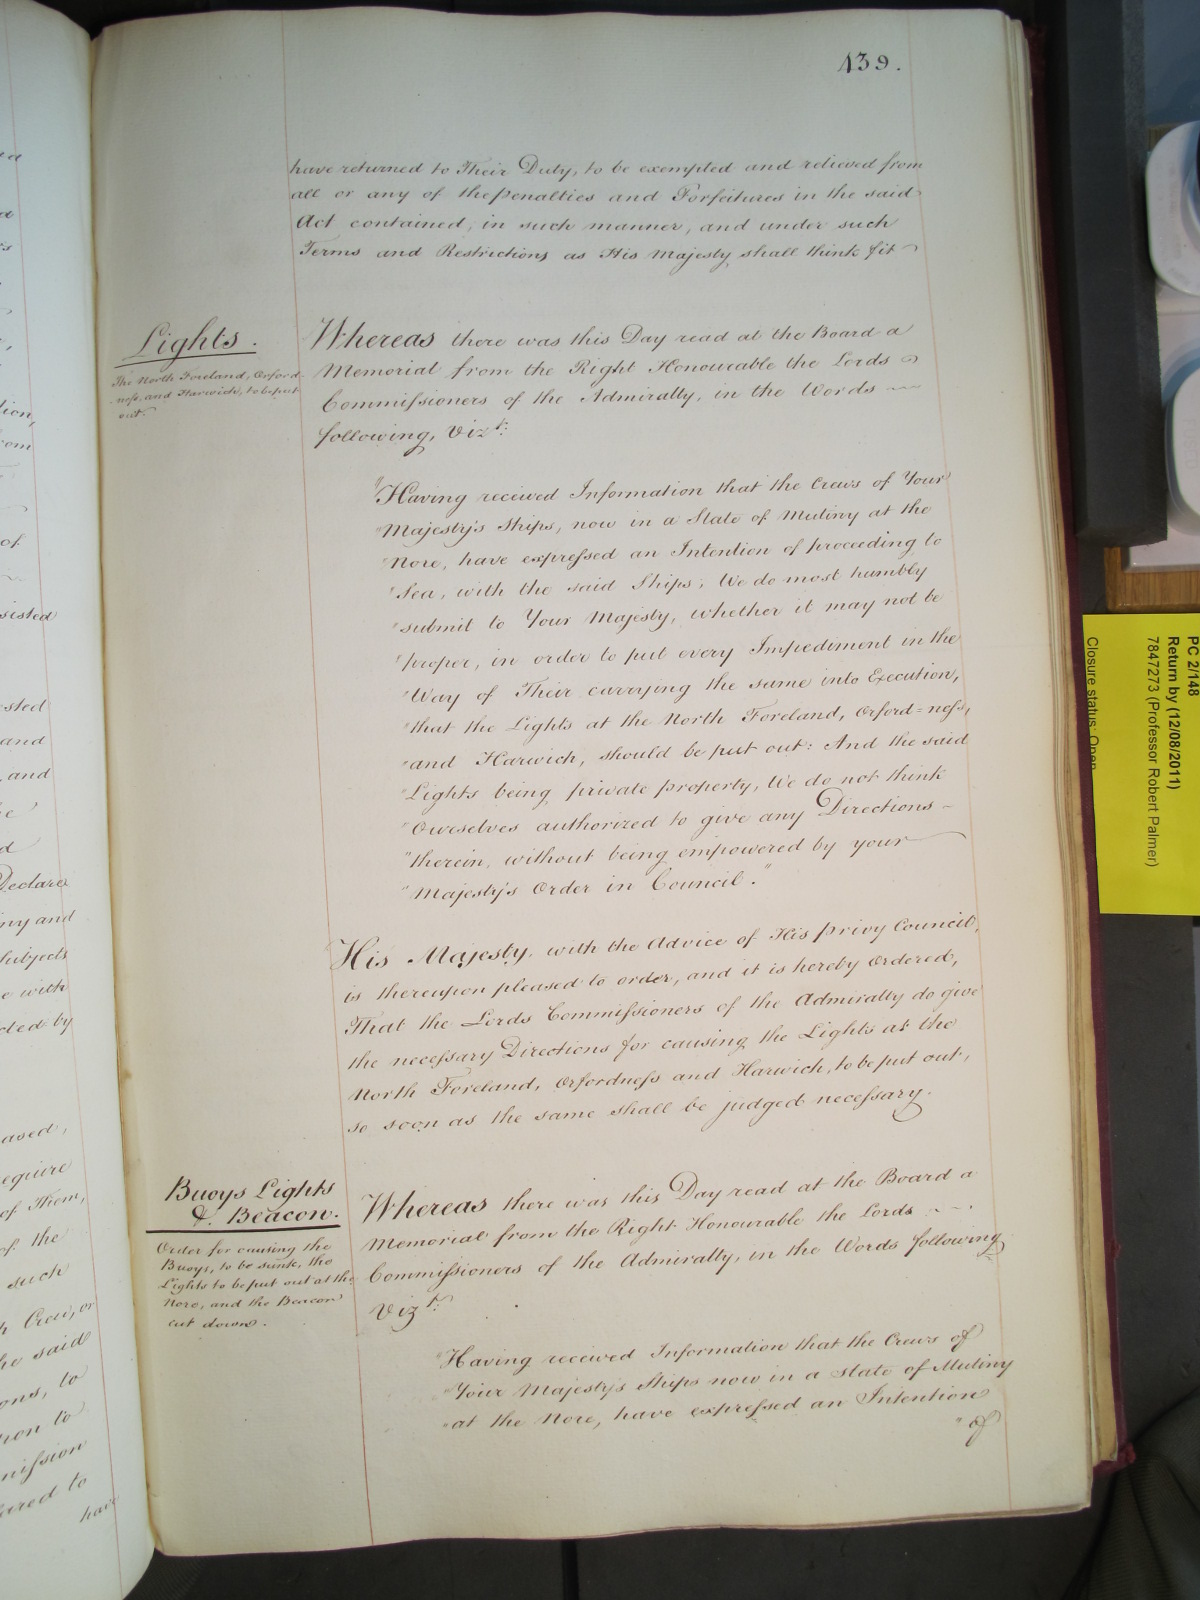 139.
have returned to Their Duty, to be exempted and relieved from
all or any of the penalties and Forfeitures in the said
Act contained, in such manner, and under such
Terms and Restrictions as His Majesty shall think fit
Lights.
The North Foreland, Orford-
-neſs, and Harwich, to be put
out.
Whereas there was this Day read at the Board a
Memorial from the Right Honourable the Lords
Commiſsioners of the Admiralty, in the Words
following, Vizt:
"Having received Information that the Crews of Your
"Majesty's Ships, now in a State of Mutiny at the
"Nore, have expreſsed an Intention of proceeding to
"Sea, with the said Ships; We do most humbly
"submit to Your Majesty, whether it may not be
"proper, in order to put every Impediment in the
"Way of Their carrying the same into Execution,
"that the Lights at the North Foreland, Orford=neſs,
"and Harwich, should be put out: And the said
"Lights being private property, We do not think
"Ourselves authorized to give any Directions
"therein, without being empowered by your
"Majesty's Order in Council."
His Majesty, with the Advice of His Privy Council,
is thereupon pleased to order, and it is hereby Ordered,
That the Lords Commiſsioners of the Admiralty do give
the neceſsary Directions for causing the Lights at the
North Foreland, Orfordneſs and Harwich, to be put out,
so soon as the same shall be judged neceſsary.
Buoys Lights
&. Beacon.
Order for causing the
Buoys, to be sunk, the
Lights to be put out at the
Nore, and the Beacon
cut down.
Whereas there was this Day read at the Board a
Memorial from the Right Honourable the Lords
Commiſsioners of the Admiralty, in the Words following
Vizt:
"Having received Information that the Crews of
"Your Majesty's Ships now in a State of Mutiny
"at the Nore, have expreſsed an Intention
"of
PC 2/148
Return by (12/08/2011)
7847273 (Professor Robert Palmer)
Closure status: Open
tion,
from
of
sisted
and
and
Declare
ny and
Subjects
e with
cted by
equire
of Them,
of the
such
Crew, or
he said
to
to
miſsion
to
have